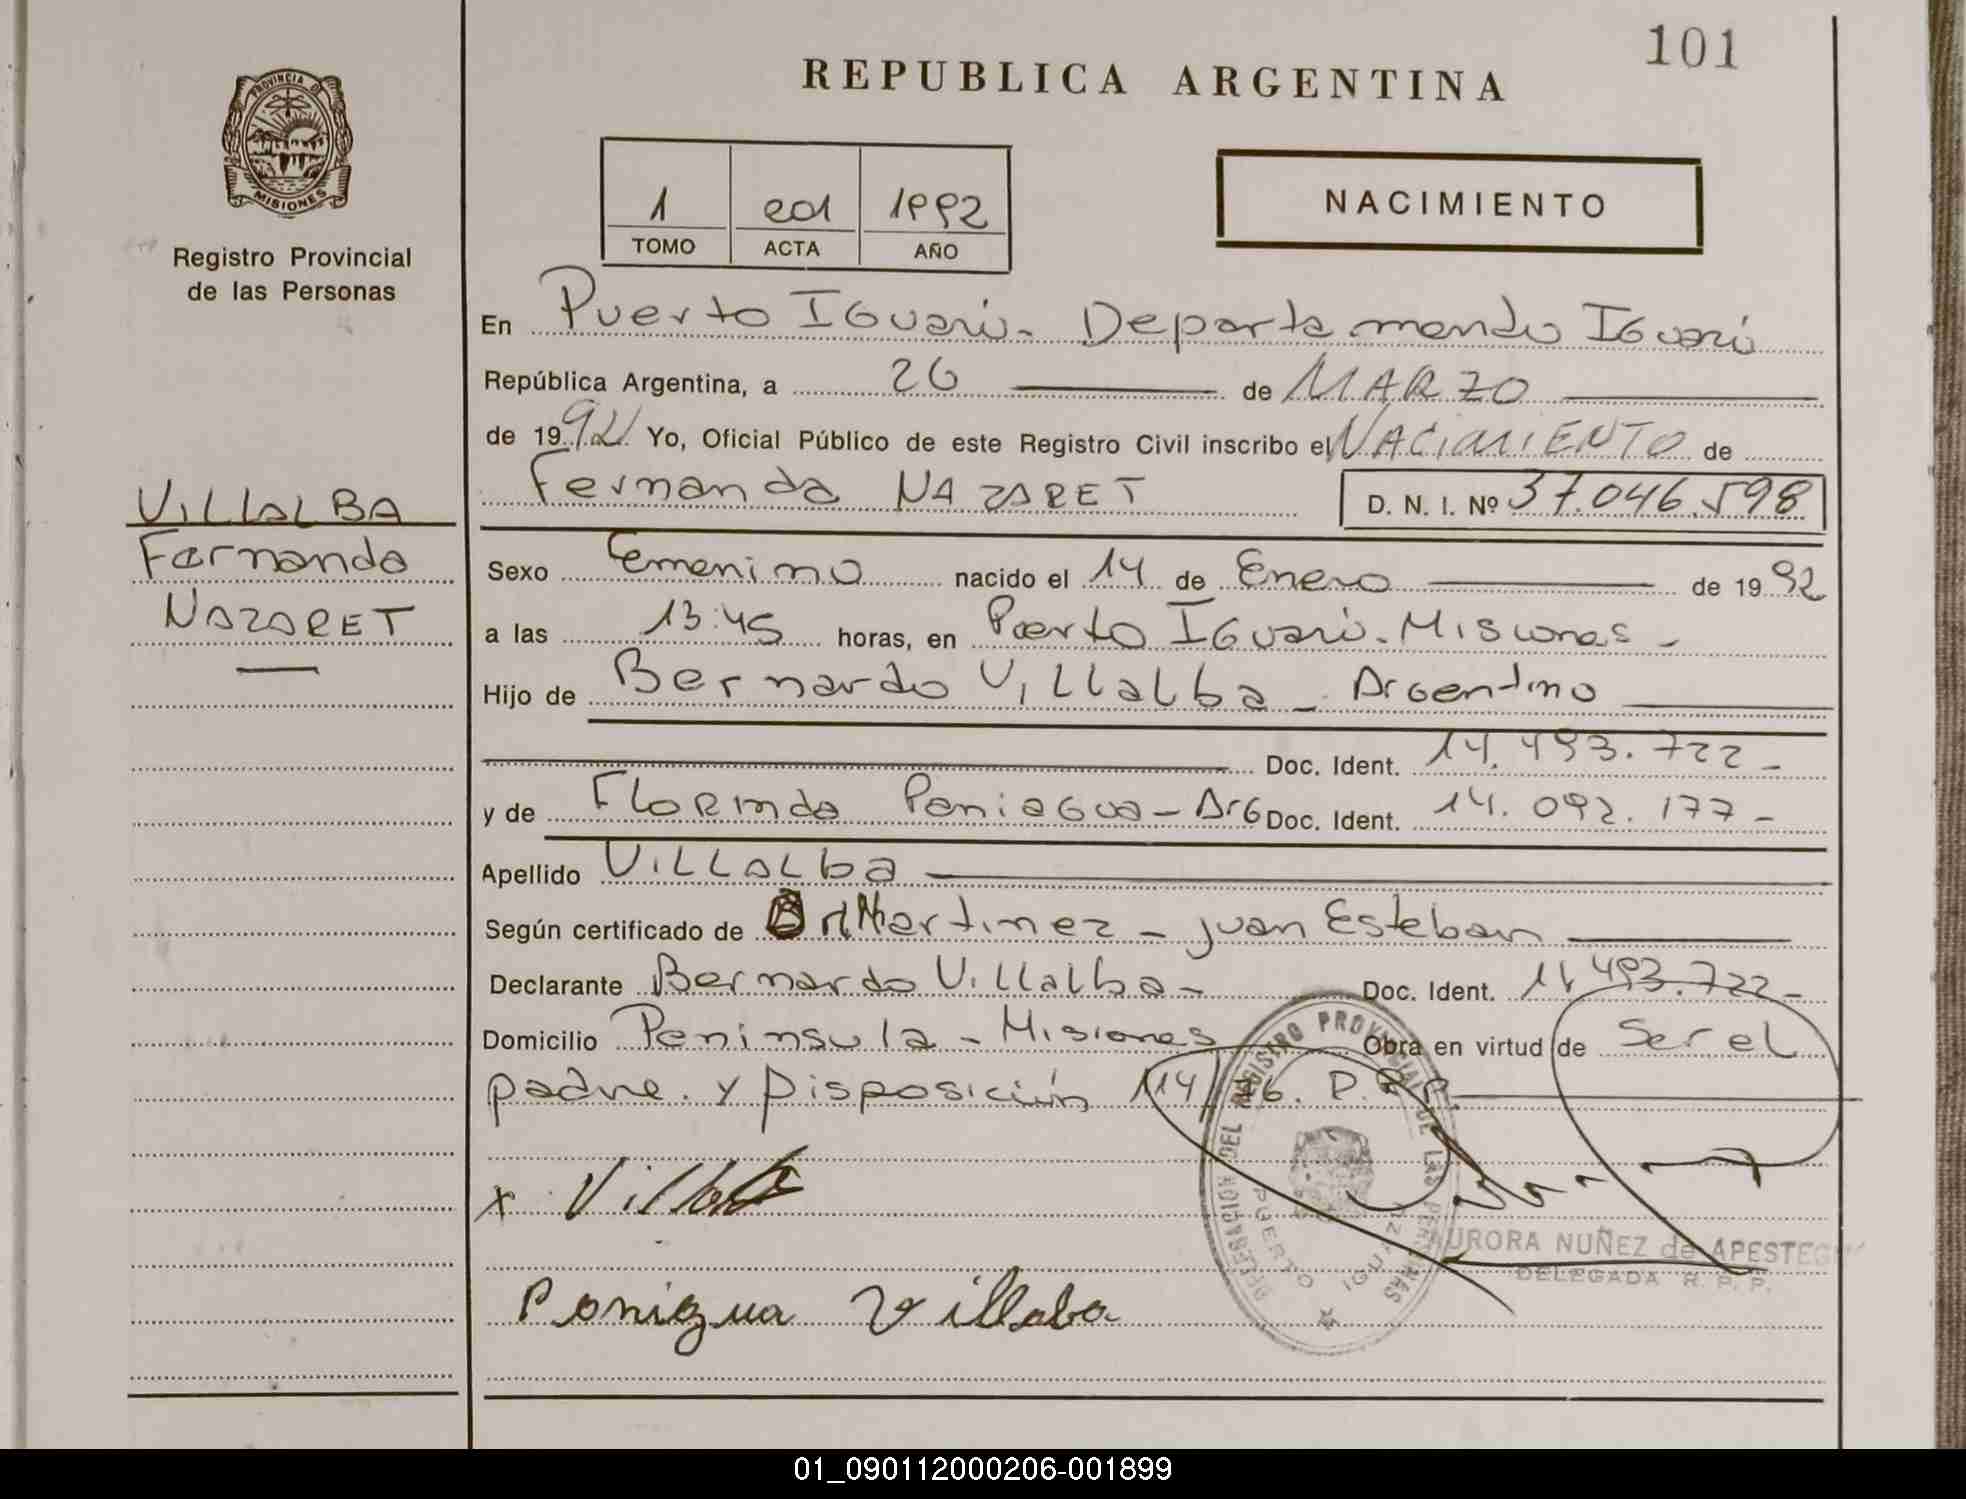 101
REPUBLICA ARGENTINA
PROVINCIA DE
MISIONES
Registro Provincial
de las Personas
1 201 1992
TOMO ACTA AÑO
NACIMIENTO
En Puerto Iguazú - Departamento Iguazú
República Argentina, a 26 de MARZO
de 1992 Yo, Oficial Público de este Registro Civil inscribo el NACIMIENTO de
Fernanda NAZARET D. N. I. Nº 37.046.598
VILLALBA
Fernanda
NAZARET
Sexo Femenino nacido el 14 de Enero de 1992
a las 13:45 horas, en Puerto Iguazú - Misiones -
Hijo de Bernardo Villalba - Argentino
Doc. Ident. 14.493.722 -
y de Florinda Paniagua - Arg Doc. Ident. 14.092.177 -
Apellido Villalba
Según certificado de Martinez - Juan Esteban
Declarante Bernardo Villalba - Doc. Ident. 14.493.722 -
Domicilio Peninsula - Misiones Obra en virtud de Ser el
padre. y Disposición 114/76. D.
x Villalba
DELEGACION DEL REGISTRO PROVINCIAL DE LAS PERSONAS
PUERTO IGUAZU
AURORA NUÑEZ de
DELEGADA R. P. P.
Ponigua Villaba
01_090112000206-001899